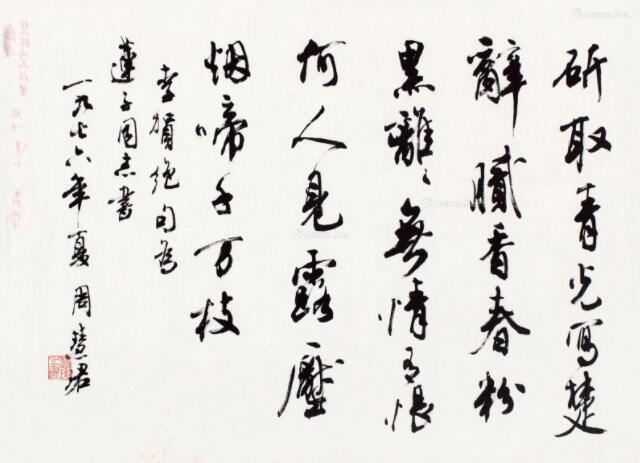 斫取青光写楚
辭膩香春粉
黑離々無情有恨
何人見露壓
烟啼千万枝
李賀絕句为
蓮子同志書
一九七六年夏 周慧珺